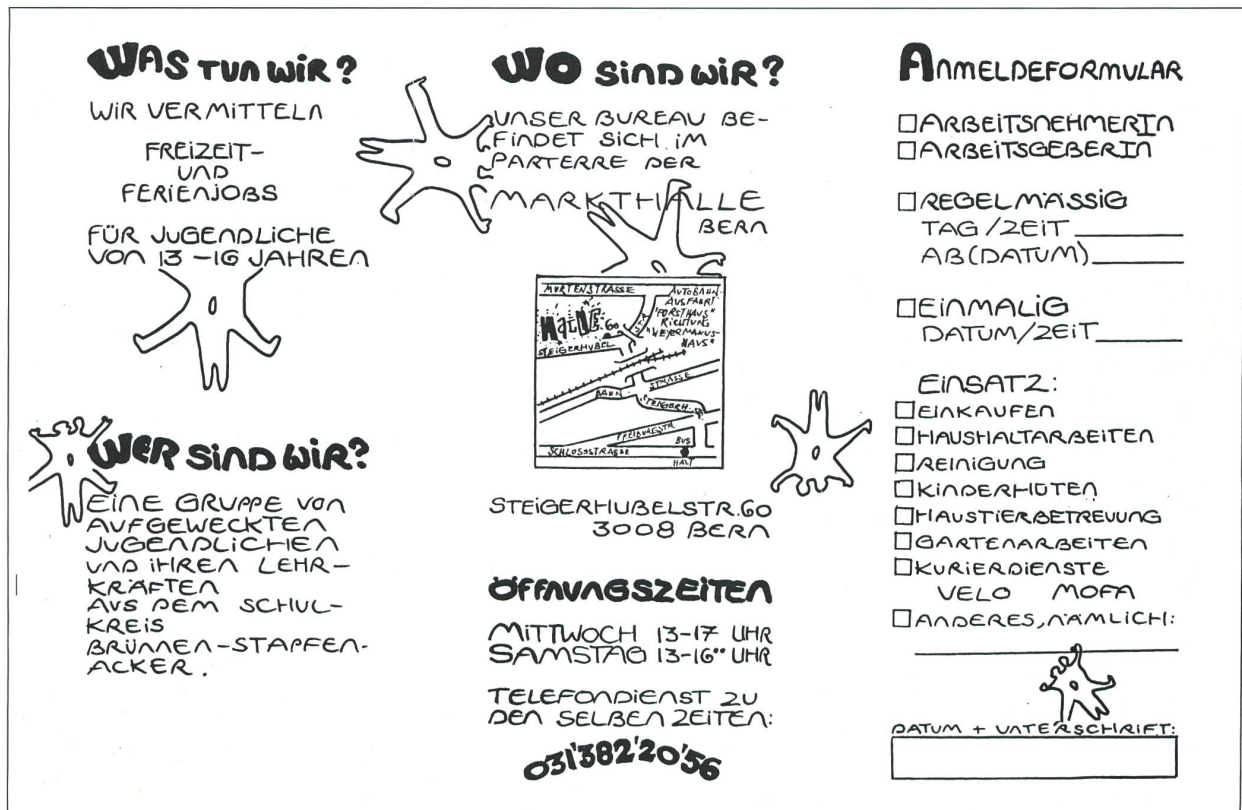 WAS TUN WIR?
WIR VERMITTELN
FREIZEIT-
UND
FERIENJOBS
FÜR JUGENDLICHE
VON 13-16 JAHREN
WER SIND WIR?
EINE GRUPPE VON
AUFGEWECKTEN
JUGENDLICHEN
UND IHREN LEHR-
KRÄFTEN
AUS DEM SCHUL-
KREIS
BRÜNNEN-STAPFEN-
ACKER.
WO SIND WIR?
UNSER BUREAU BE-
FINDET SICH IM
PARTERRE DER
MARKTHALLE
BERN
MURTENSTRASSE
AUTOBAHN-
AUSFAHRT
"FORSTHAUS"
RICHTUNG
"WEYERMANNS-
HAUS"
STR.
60
STEIGERHUBEL
BAHN
STRASSE
STEIGERH.
FREIBURGSTR.
BUS
SCHLOSSSTRASSE
HALT
STEIGERHUBELSTR.60
3008 BERN
ÖFFNUNGSZEITEN
MITTWOCH 13-17 UHR
SAMSTAG 13-16°° UHR
TELEFONDIENST ZU
DEN SELBEN ZEITEN:
031'382'20'56
ANMELDEFORMULAR
☐ARBEITSNEHMERIN
☐ARBEITSGEBERIN
☐REGELMÄSSIG
TAG/ZEIT
AB(DATUM)
☐EINMALIG
DATUM/ZEIT
EINSATZ:
☐EINKAUFEN
☐HAUSHALTARBEITEN
☐REINIGUNG
☐KINDERHÜTEN
☐HAUSTIERBETREUUNG
☐GARTENARBEITEN
☐KURIERDIENSTE
VELO MOFA
☐ANDERES, NÄMLICH:
DATUM + UNTERSCHRIFT: